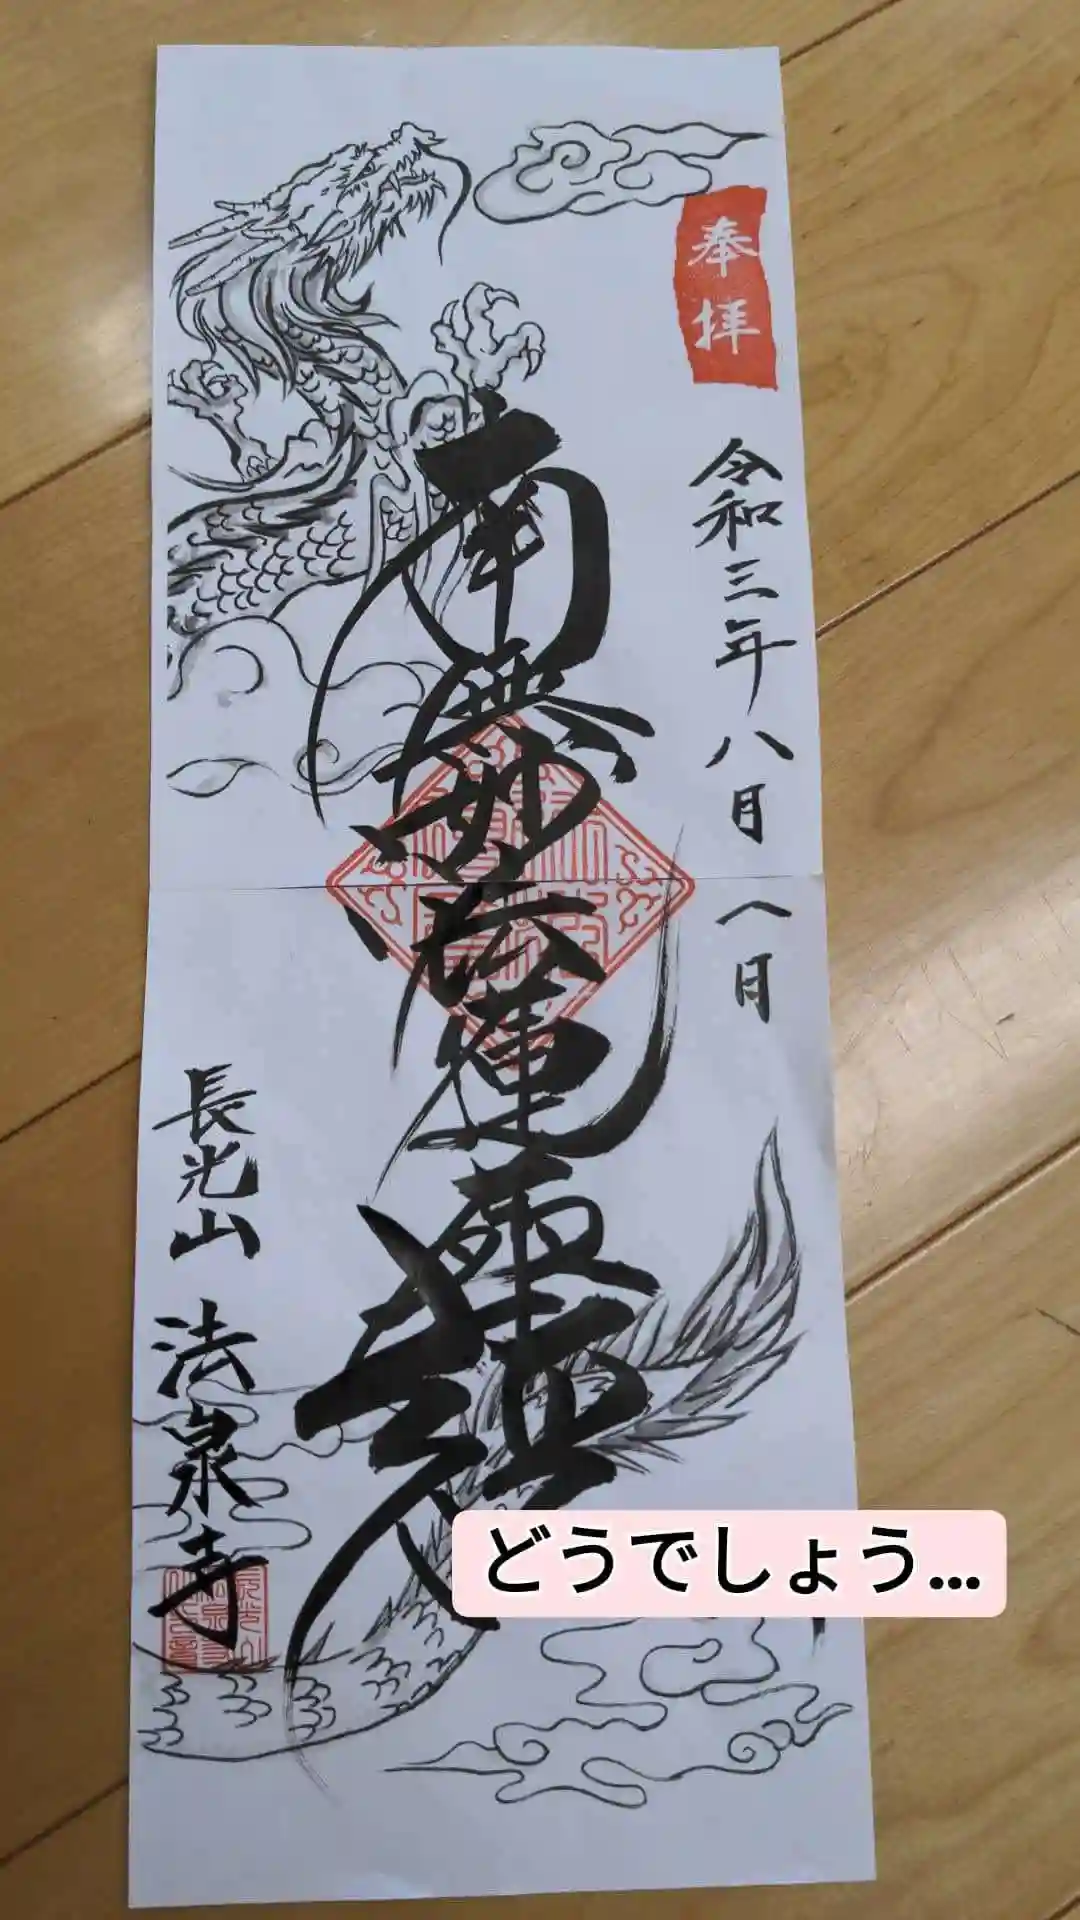 奉拝
令和三年八月八日
南無妙法蓮華経
長光山 法泉寺
どうでしょう…